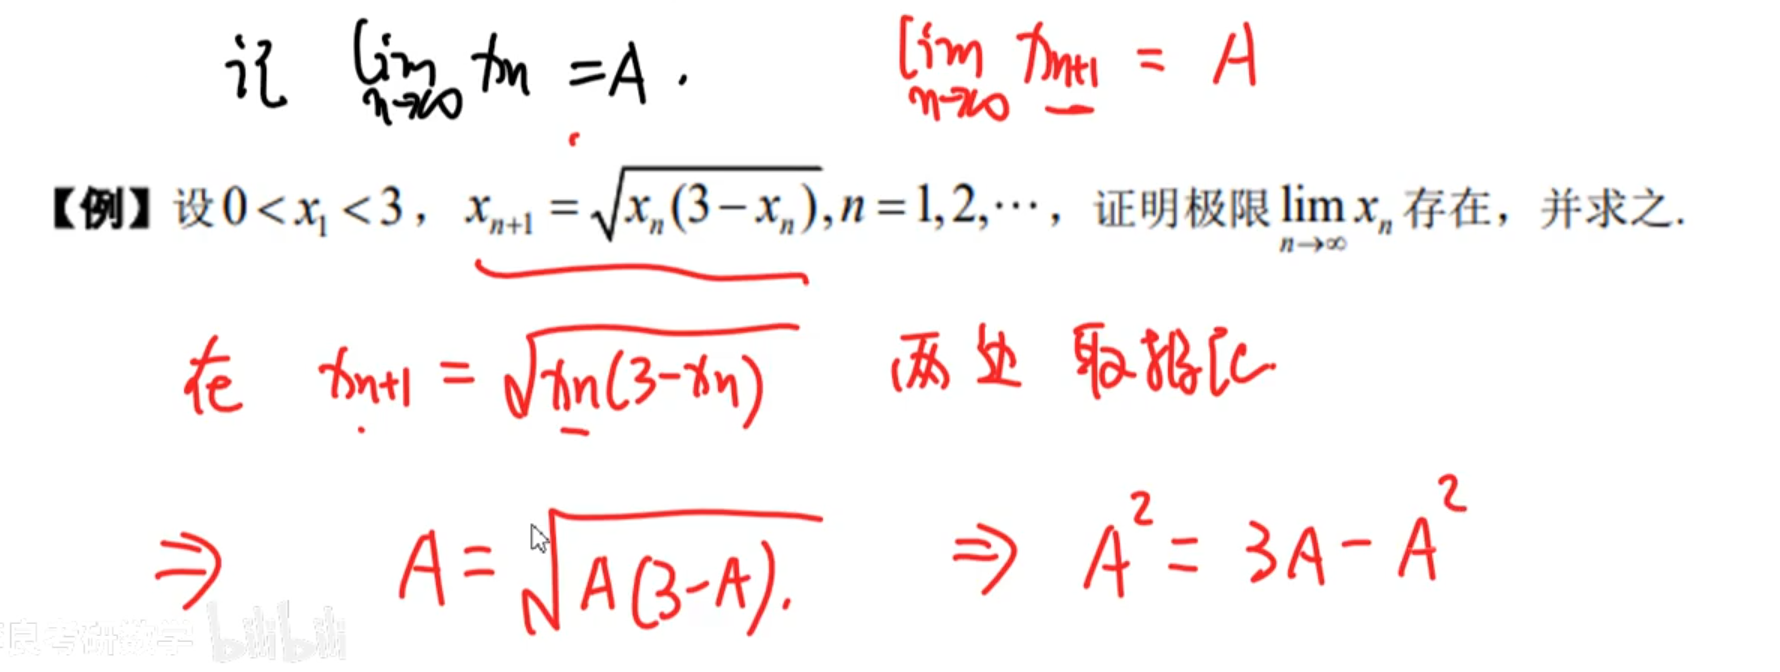 记 lim n→∞ xn = A. lim n→∞ xn+1 = A
【例】设 0 < x₁ < 3, xₙ₊₁ = √(xₙ(3−xₙ)), n = 1, 2, ⋯, 证明极限 lim n→∞ xₙ 存在, 并求之.
在 xn+1 = √(xn(3-xn)) 两边取极限
⇒ A = √(A(3-A)). ⇒ A² = 3A - A²
良考研数学 bilibili